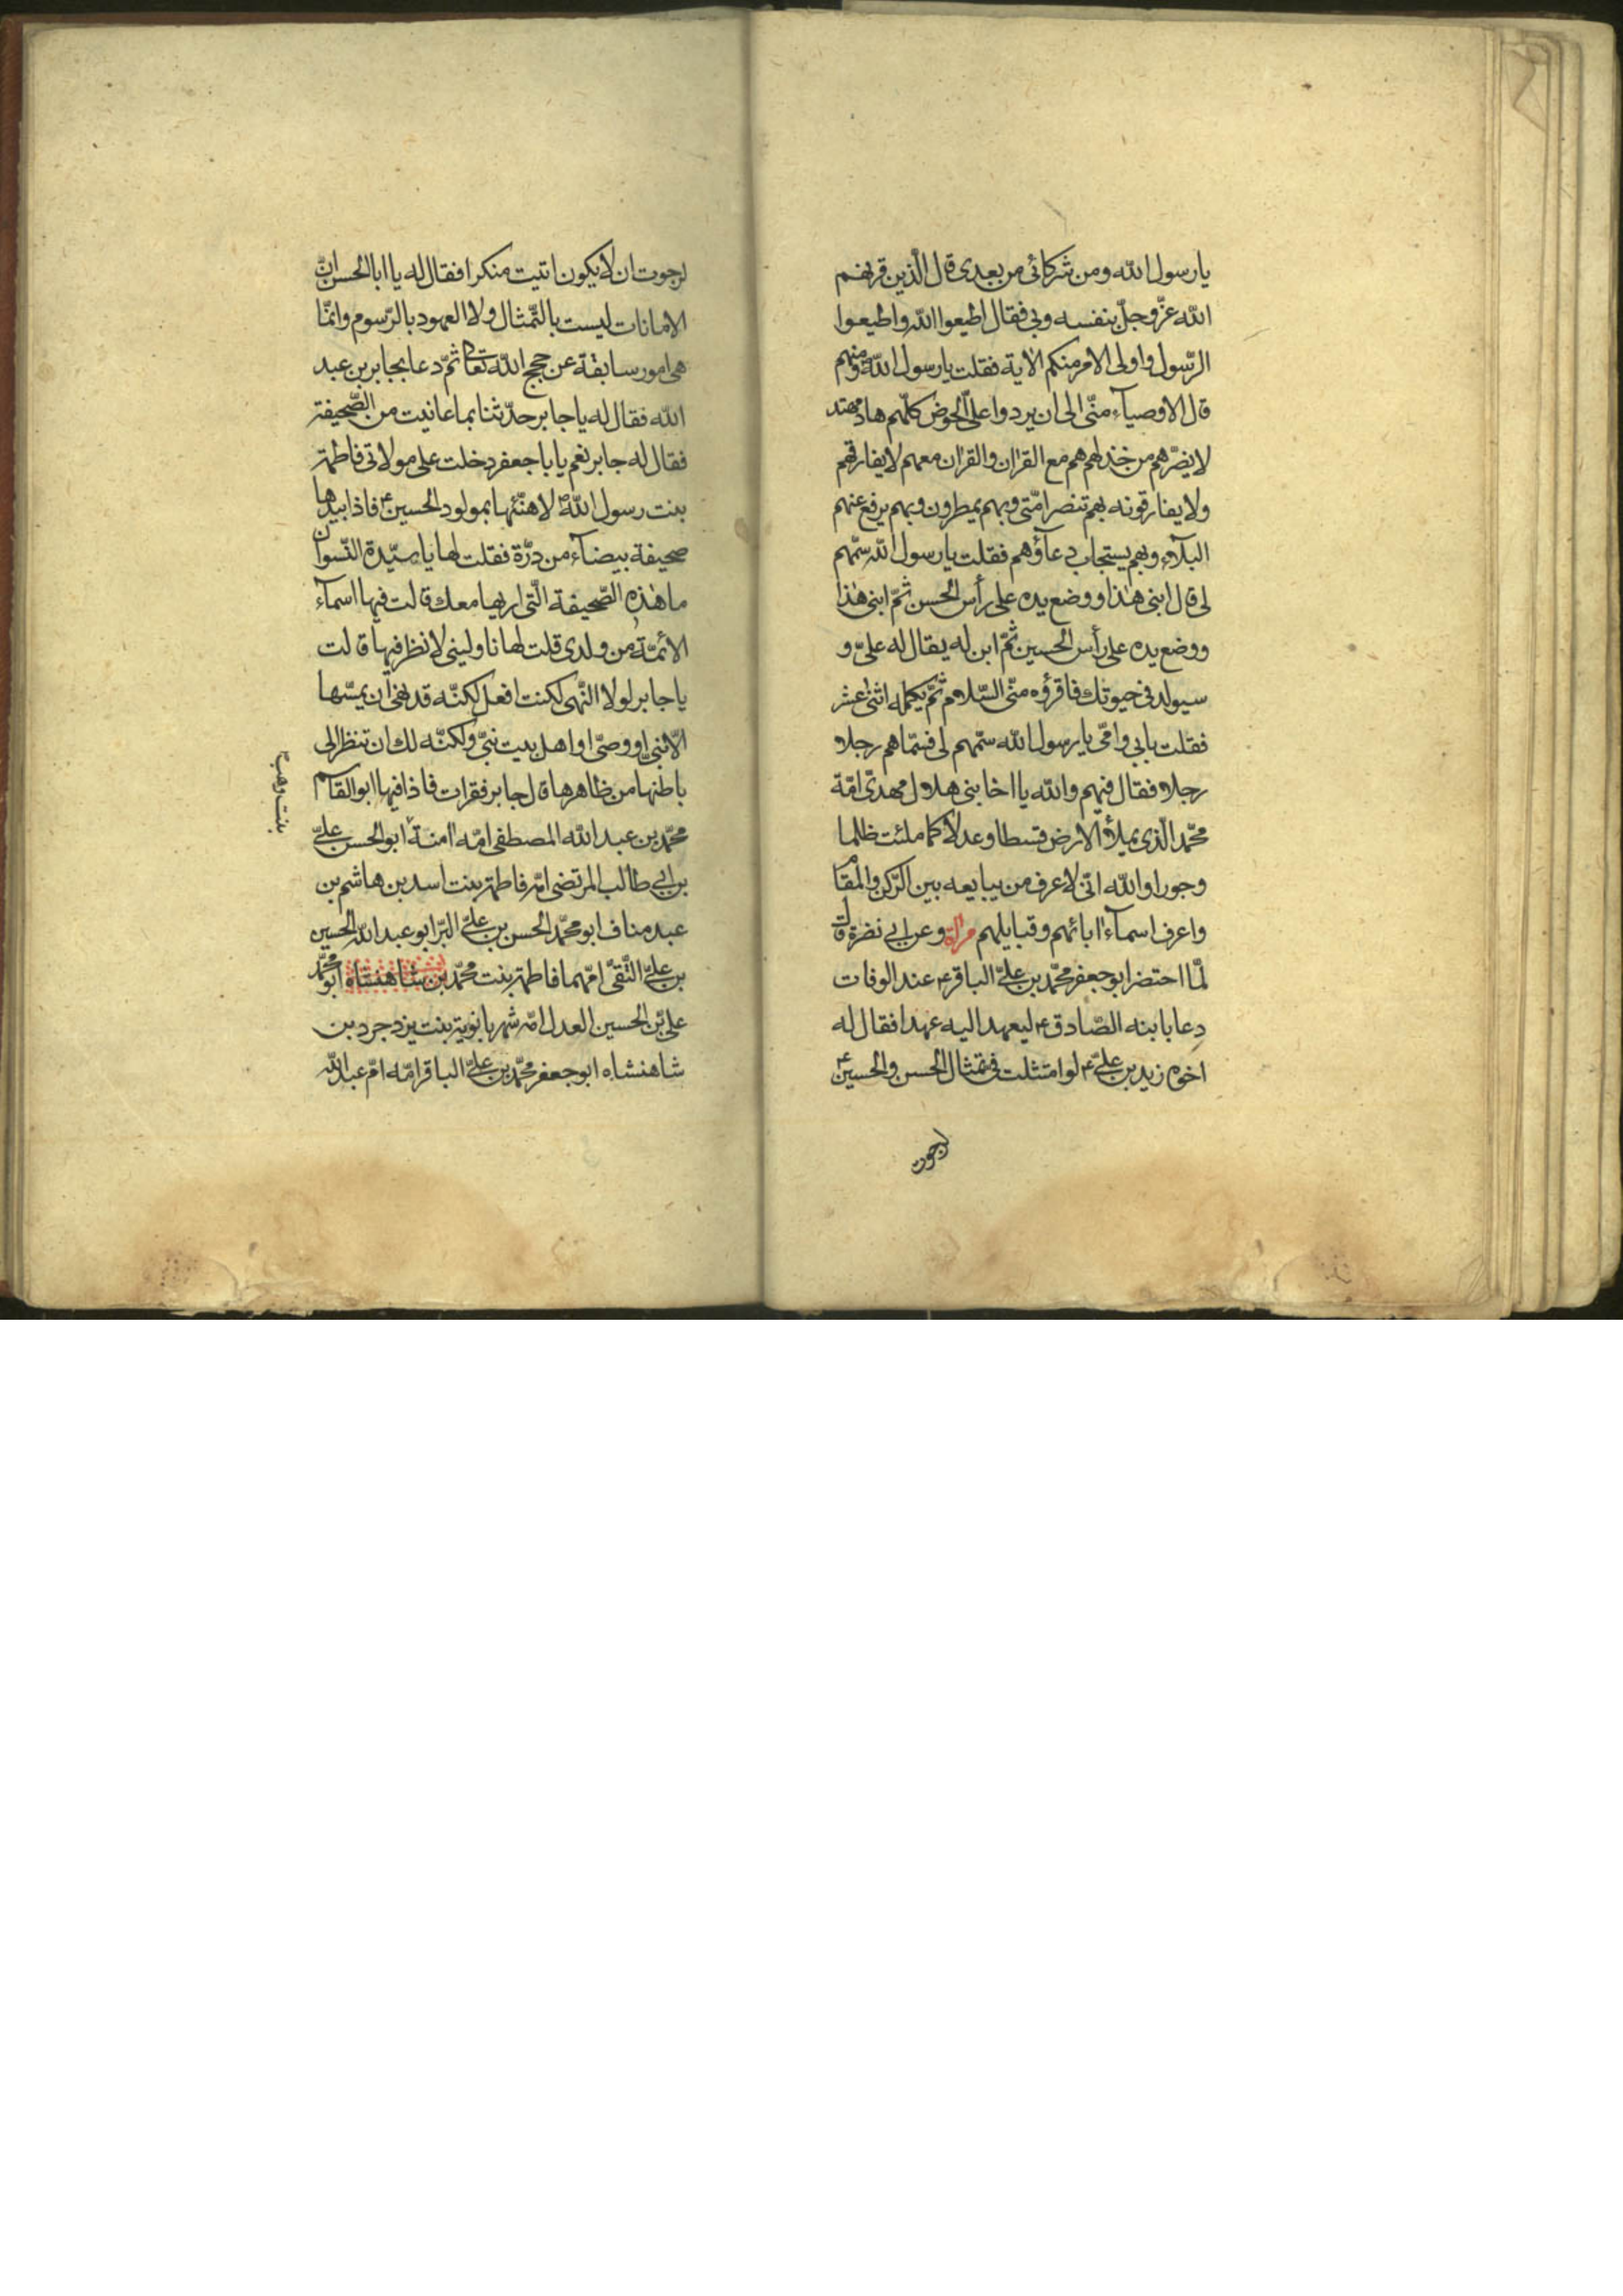 يا رسول الله ومن شركائى من بعدى قال الّذين قرنهم
الله عزّ وجلّ بنفسه وبى فقال اطيعوا الله واطيعوا
الرّسول واولى الامر منكم الاية فقلت يا رسول الله ومنهم
قال الاوصيآء منّى الى ان يردوا علىّ الحوض كلّهم هاد مهتد
لا يضرّهم من خذلهم هم مع القران والقران معهم لا يفارقهم
ولا يفارقونه بهم تنصر امّتى وبهم يمطرون وبهم يرفع عنهم
البلآء وبهم يستجاب دعآؤهم فقلت يا رسول الله سمّهم
لى قال ابنى هذا ووضع يده على رأس الحسن ثمّ ابنى هذا
ووضع يده على رأس الحسين ثمّ ابن له يقال له علىّ و
سيولد فى حيوتك فاقرؤه منّى السّلام ثمّ يكمله اثنى عشر
فقلت بابى وامّى يا رسول الله سمّهم لى فسمّاهم رجلا
رجلا فقال فيهم والله يا اخا بنى هلال مهدىّ امّة
محمّد الّذى يملأ الارض قسطا وعدلا كما ملئت ظلما
وجورا والله انّى لاعرف من يبايعه بين الرّكن والمقام
واعرف اسمآء ابائهم وقبايلهم وعن ابى نضرة قال
لمّا احتضر ابو جعفر محمّد بن علىّ الباقر ع عند الوفات
دعا بابنه الصّادق ع ليعهد اليه عهدا فقال له
اخوه زيد بن علىّ ع لو امتثلت فى تمثال الحسن والحسين ع
لرجوت
لرجوت ان لا يكون اتيت منكرا فقال له يا ابا الحسن انّ
الامانات ليست بالتّمثال ولا العهود بالرّسوم وانّما
هى امور سابقة عن حجج الله تعالى ثمّ دعا بجابر بن عبد
الله فقال له يا جابر حدّثنا بما عانيت من الصّحيفة
فقال له جابر نعم يا با جعفر دخلت على مولاتى فاطمة
بنت رسول الله ص لاهنّئها بمولود الحسين ع فاذا بيدها
صحيفة بيضآء من درّة فقلت لها يا سيّدة النّسوان
ما هذه الصّحيفة الّتى اريها معك قالت فيها اسمآء
الأئمّة من ولدى قلت لها ناولينى لانظر فيها قالت
يا جابر لولا النّهى لكنت افعل لكنّه قد نهى ان يمسّها
الّا نبىّ او وصىّ او اهل بيت نبىّ ولكنّه لك ان تنظر الى
باطنها من ظاهرها قال جابر فقرات فاذا فيها ابو القاسم
محمّد بن عبد الله المصطفى امّه امنة ابو الحسن علىّ
بنت وهب
بن ابى طالب المرتضى امّه فاطمة بنت اسد بن هاشم بن
عبد مناف ابو محمّد الحسن بن علىّ البرّ ابو عبد الله الحسين
بن علىّ التّقىّ امّهما فاطمة بنت محمّد بن شاهنشاه ابو محمّد
علىّ بن الحسين العدل امّه شهربانوية بنت يزدجرد بن
شاهنشاه ابو جعفر محمّد بن علىّ الباقر امّه امّ عبد الله